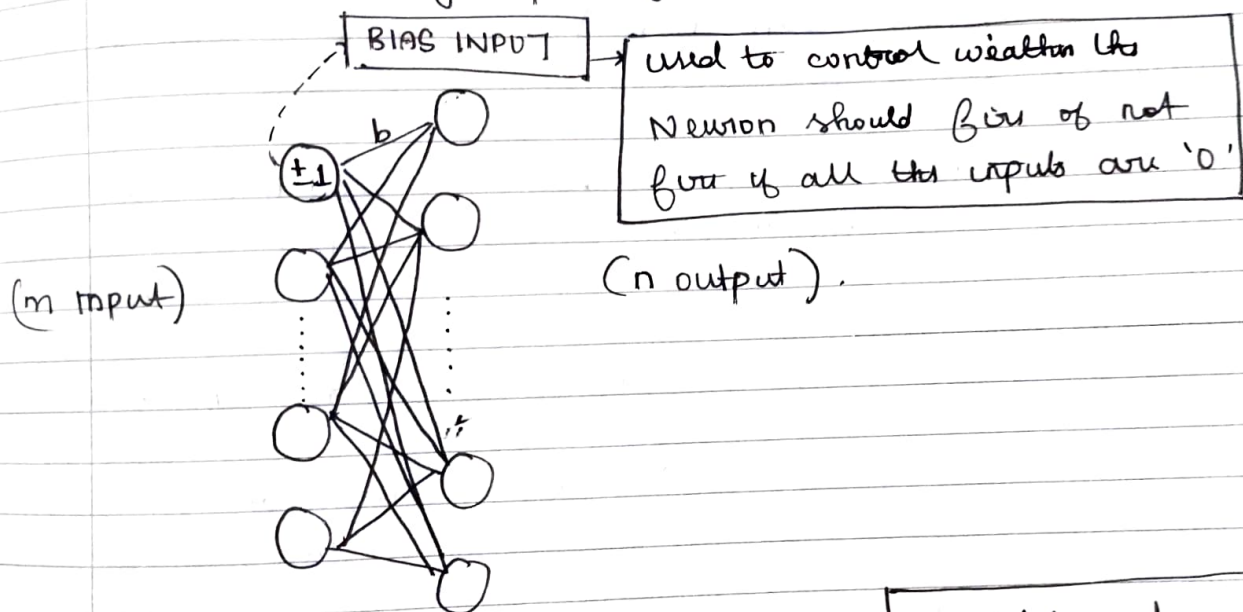 BIAS INPUT
used to control weather the
Neuron should fire of not
fire if all the inputs are '0'
b
±1
(m input)
(n output).